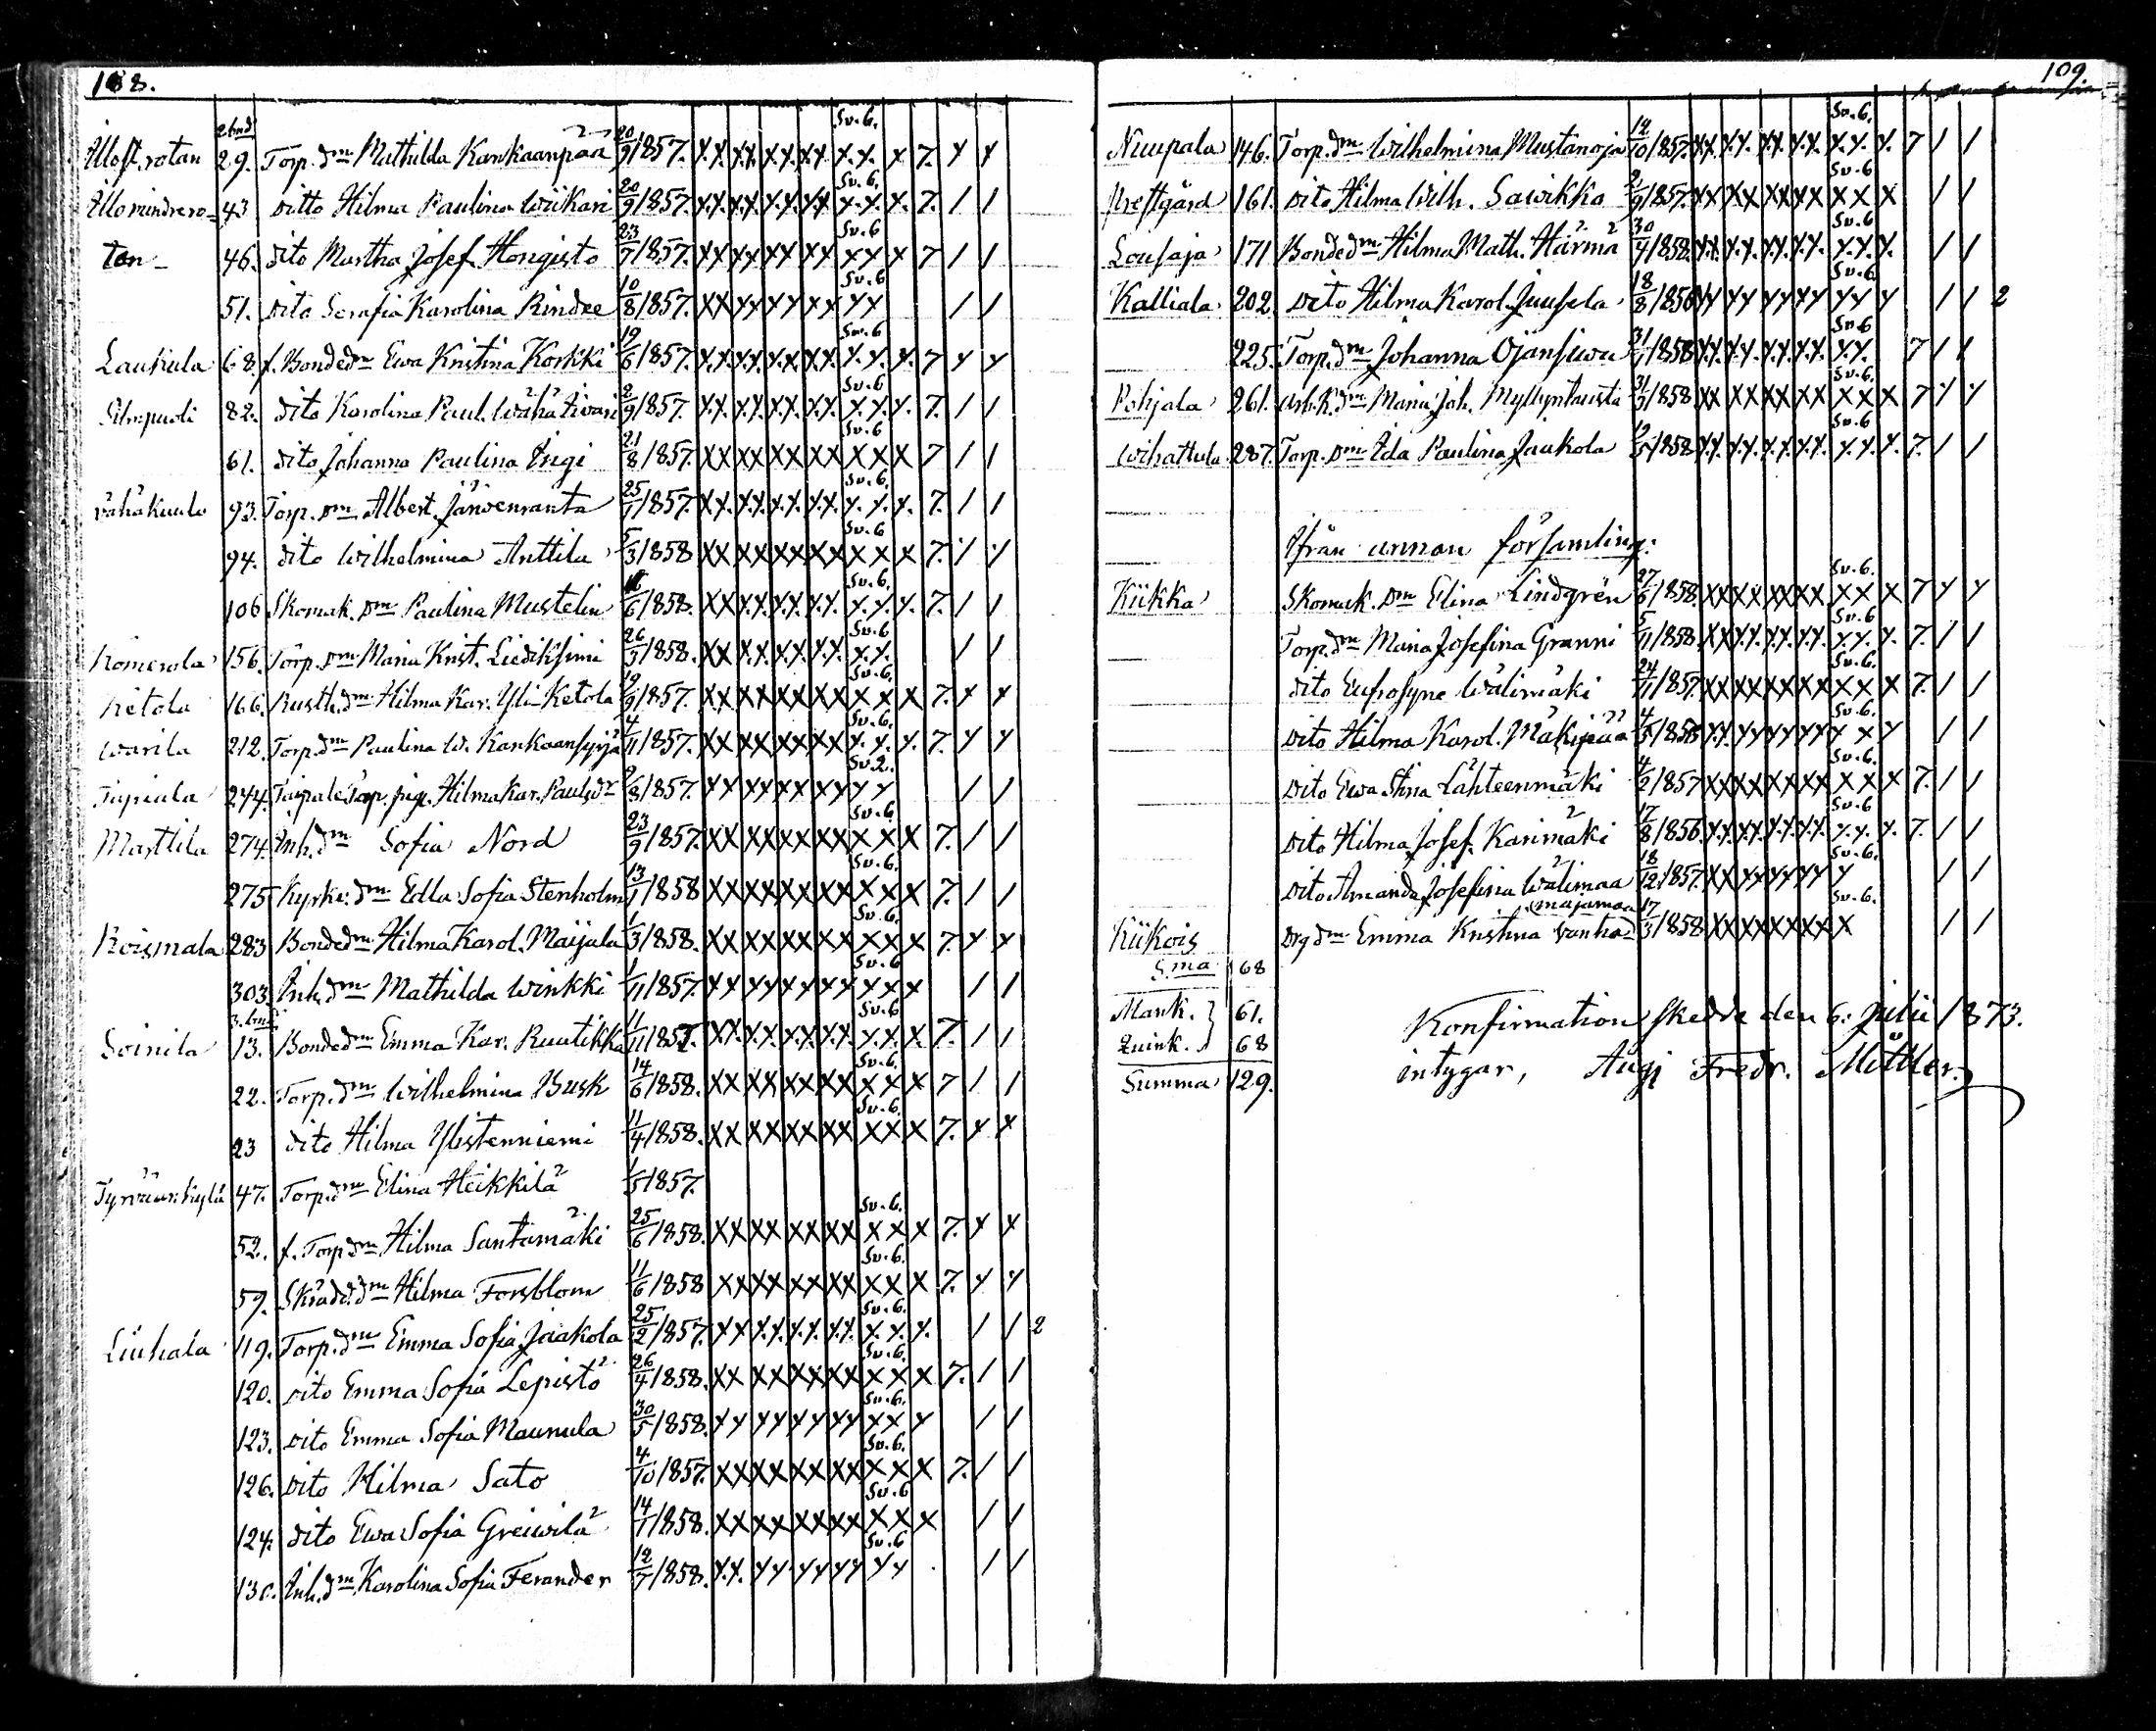 108.
2 bnd
29. Torp. dm Mathilda Kankaanpää 20/9 1857. X.X. X.X. X.X. X.X. Sv. 6. X.X. X 7. X X
43 ditto Hilma Paulina Wiikari 20/9 1857. X.X. X.X. X.X. XX Sv. 6. X.X. X. 7. / /
ten 46. dito Martha Josef. Hongisto 23/7 1857. XX XX XX XX Sv. 6 XX X 7 / /
51. dito Serafia Karolina Rindee 10/8 1857. XX XX XX XX Sv. 6 XX / /
Laukula 68. f. Bonded m Ewa Kristina Korkki 19/6 1857. X.X. X.X. X.X. X.X. Sv. 6 X.X. X. 7 X X
82. dito Karolina Paul. Wähätiwari 2/9 1857. X.X. X.X. X.X. X.X. Sv. 6 X.X. X. 7. / /
61. dito Johanna Paulina Ingi 21/8 1857. XX XX XX XX Sv. 6 XX X 7 / /
93. Torp. Dm Albert. Järwenranta 25/7 1857. X.X. X.X. X.X. X.X. Sv. 6. X.X. X. 7. / /
94. dito Wilhelmina Anttila 5/3 1858 XX XX XX XX Sv. 6 XX X 7. / /
106 Skomak. Dm Paulina Mustelin 6 1858. XX X.X. X.X. X.X. Sv. 6. X.X. X. 7. / /
156. Torp. Dm Maria Krist. Liediksimi 26/3 1858. XX X.X. X.X. X.X. Sv. 6 X.X. / /
Ketola 166. Rusth. dm Hilma Kar. Yli-Ketola 19/9 1857. XX XX XX XX Sv. 6. XX X 7. X X
Warila 212. Torp. dm Paulina W. Kankaansyrjä 4/11 1857. XX XX XX XX Sv. 6. X.X. X. 7. X X
244. Taipale Torp. pig. Hilma Kar. Paulsdr 9/8 1857. XX XX XX XX Sv. 2. XX / /
Marttila 274. Inh. dm Sofia Nord 23/9 1857. XX XX XX XX Sv. 6 XX X 7. / /
275 Kyrkv. dm Edla Sofia Stenholm 13/1 1858 XX XX XX XX Sv. 6. XX X 7. / /
Roismala 283 Bonded m Hilma Karol. Maijala 1/3 1858. XX XX XX XX Sv. 6. XX X 7. X X
303. Inh. dm Mathilda Winkki 1/11 1857. XX XX XX XX Sv. 6 XX X / /
3. bnd
Soinila 13. Bonded m Emma Kar. Ruutikka 11/11 1857. XX. X.X. X.X. X.X. Sv. 6 X.X. X. 7. / /
22. Torp. dm Wilhelmina Busk 14/6 1858. XX XX XX XX Sv. 6. XX X 7 / /
23 dito Hilma Ylistenniemi 11/4 1858. XX XX XX XX Sv. 6. XX X 7. X X
47. Torp. dm Elina Heikkilä 1/5 1857.
52. f. Torp dm Hilma Santamäki 25/6 1858. XX XX XX XX Sv. 6. XX X 7. X X
59. Skrädd. dm Hilma Forsblom 11/6 1858 XX XX XX XX Sv. 6. XX X 7. X X
Liuhala 119. Torp. dm Emma Sofia Jaakola 25/2 1857. XX X.X. X.X. X.X. Sv. 6. X.X. X. / / 2
120. dito Emma Sofia Lepistö 26/4 1858. XX XX XX XX Sv. 6. XX X 7. / /
123. dito Emma Sofia Maunula 30/5 1858. XX XX XX XX Sv. 6. XX X / /
126. dito Hilma Sato 4/10 1857. XX XX XX XX Sv. 6. XX X 7. / /
124. dito Ewa Sofia Greiwilä 14/7 1858. XX XX XX XX Sv. 6 XX X / /
130. Inh. dm Karolina Sofia Ferander 12/7 1858. X.X. XX XX XX Sv. 6 XX / /
109.
Nuupala 146. Torp. dm Wilhelmina Mustanoja 12/10 1857. XX. X.X. X.X. X.X. Sv. 6. X.X. X. 7 / /
Prestgård 161. dito Hilma Wilh. Sawikko 2/9 1857. XX XX XX XX Sv. 6 XX X / /
Lousaja 171 Bonded m Hilma Math. Härmä 30/4 1858. X.X. X.X. X.X. X.X. Sv. 6 X.X. X. / /
Kalliala 202. dito Hilma Karol. Juusela 18/8 1856 XX XX XX XX Sv. 6 XX X / / 2
225. Torp. dm Johanna Ojansuu 31/1 1858 X.X. X.X. X.X. X.X. Sv. 6 X.X. 7 / /
Pohjala 261. Arb.k. dm Maria Joh. Myllyntausta 31/3 1858 XX XX XX XX Sv. 6. XX X 7 / /
Wihattula 287. Torp. Dm Ida Paulina Jaukola 5 1858 X.X. X.X. X.X. X.X. Sv. 6 X.X. X. 7. / /
Ifrån annan församling:
Kiikka Skomak. Dm Elina Lindgrén 27/6 1858. XX XX XX XX Sv. 6. XX X 7 X X
Torp. dm Maria Josefina Granni 5/11 1858. XX X.X. X.X. X.X. Sv. 6 X.X. X. 7. / /
dito Eufrosyne Wälimäki 24/11 1857. XX XX XX XX Sv. 6. XX X 7. / /
dito Hilma Karol. Mäkipää 4/5 1858 X.X. XX XX XX Sv. 6. XX X / /
dito Ewa Stina Lähteenmäki 4/2 1857 XX XX XX XX Sv. 6. XX X 7. / /
dito Hilma Josef. Karimäki 17/8 1856. X.X. X.X. X.X. X.X. Sv. 6 X.X. X. 7. / /
dito Amanda Josefina Wälimaa 18/12 1857. XX XX XX XX Sv. 6. X / /
Kiikois Drg dm Emma Kristina Vanha- (majamaa 17/3 1858 XX XX XX XX Sv. 6. X / /
S:ma 68
Mank. } 61.
Quink. } 68
Summa 129.
Konfirmation skedde den 6. Julii 1873.
intygar, Aug. Fredr. Möller.